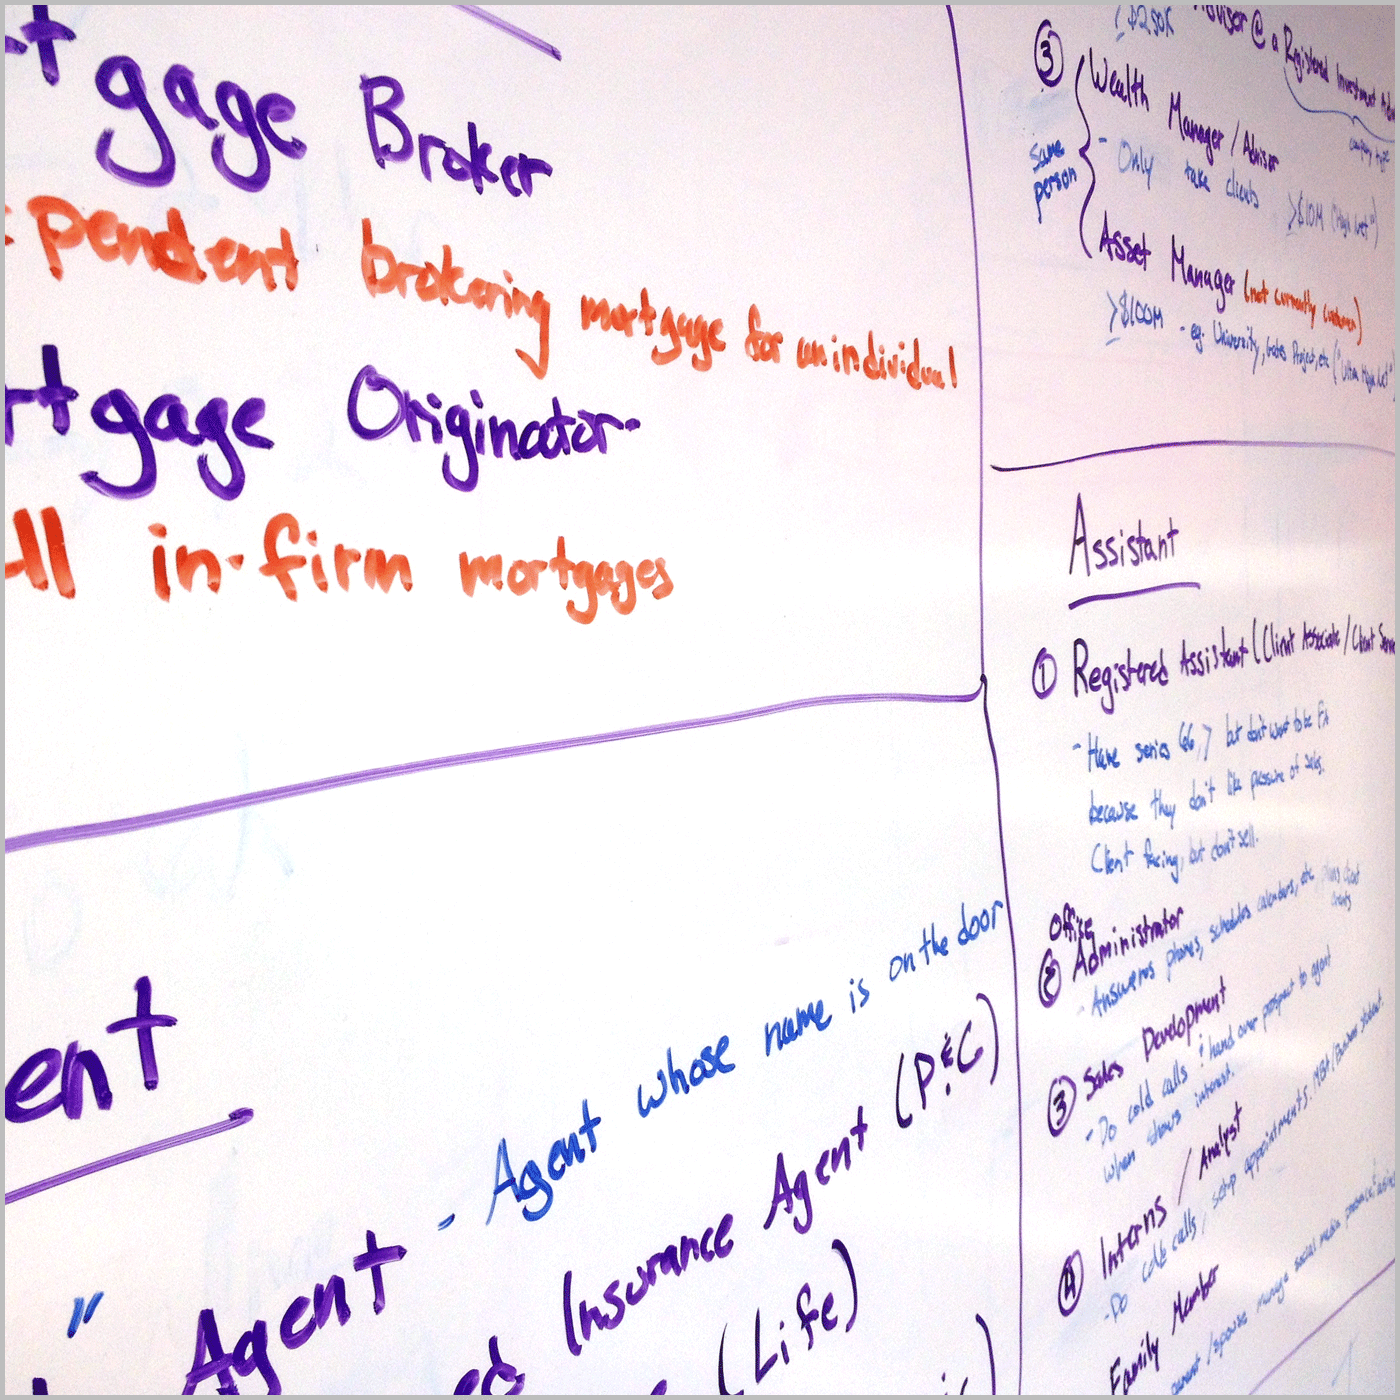 gage Broker
pendent brokering mortgage for an individual
rtgage Originator
All in-firm mortgages
ent
- Agent whose name is on the door
" Agent
ed Insurance Agent (P&C)
(Life)
≥$250K
Advisor @ a Registered Investment
company type
③ Wealth Manager / Advisor
same person
- Only take clients ≥$10M ("High Net")
Asset Manager (not currently customer)
≥$100M - eg. University, Gates Project, etc ("Ultra High Net")
Assistant
① Registered Assistant (Client Associate / Client
- Have series 66, 7 but don't want to be FA
because they don't like pressure of sales.
Client facing, but don't sell.
Office
② Administrator
- Answers phones, schedules calendars, etc plans client events
③ Sales Development
- Do cold calls & hand over prospect to agent
when shows interest.
④ Interns / Analyst
- Do cold calls, setup appointments. MBA/Business student.
Family Member
/spouse manage social media presence